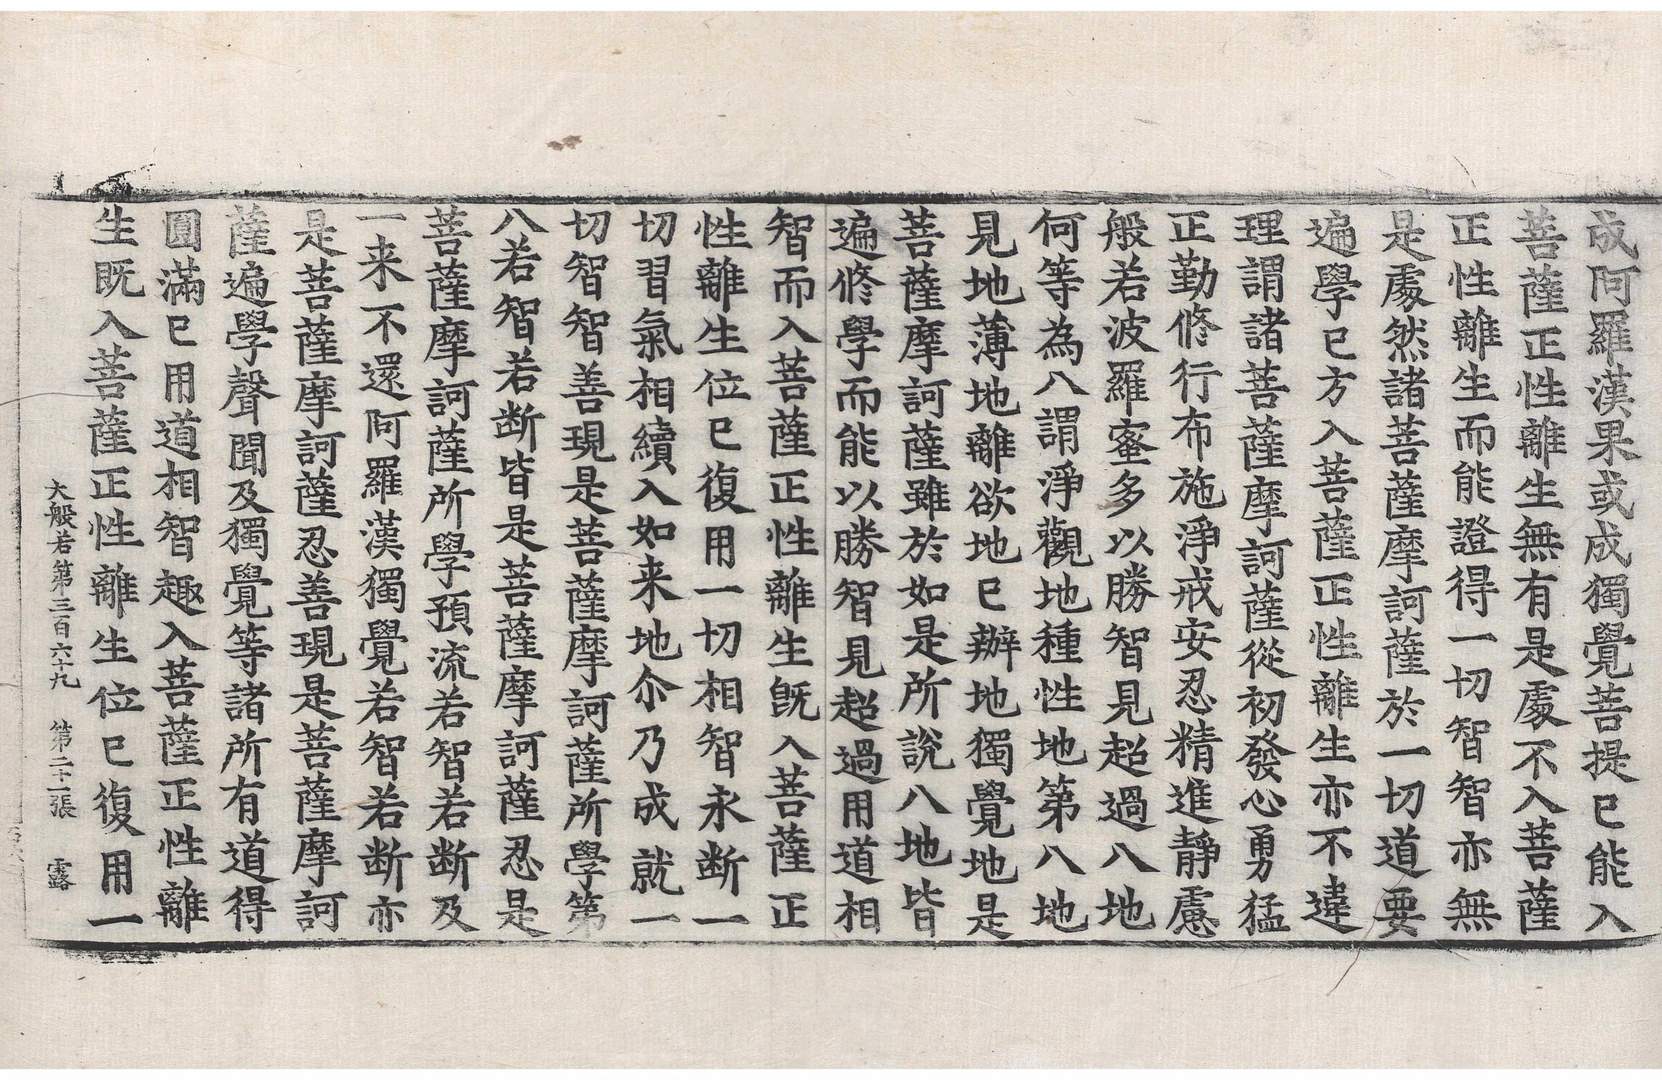 成阿羅漢果或成獨覺菩提已能入
菩薩正性離生無有是處不入菩薩
正性離生而能證得一切智智亦無
是處然諸菩薩摩訶薩於一切道要
遍學已方入菩薩正性離生亦不違
理謂諸菩薩摩訶薩從初發心勇猛
正勤修行布施淨戒安忍精進靜慮
般若波羅蜜多以勝智見超過八地
何等為八謂淨觀地種性地第八地
見地薄地離欲地已辦地獨覺地是
菩薩摩訶薩雖於如是所說八地皆
遍修學而能以勝智見超過用道相
智而入菩薩正性離生旣入菩薩正
性離生位已復用一切相智永斷一
切習氣相續入如来地尒乃成就一
切智智善現是菩薩摩訶薩所學第
八若智若断皆是菩薩摩訶薩忍是
菩薩摩訶薩所學預流若智若断及
一来不還阿羅漢獨覺若智若断亦
是菩薩摩訶薩忍善現是菩薩摩訶
薩遍學聲聞及獨覺等諸所有道得
圓滿已用道相智趣入菩薩正性離
生既入菩薩正性離生位已復用一
大般若第三百六十九 第二十一張 露